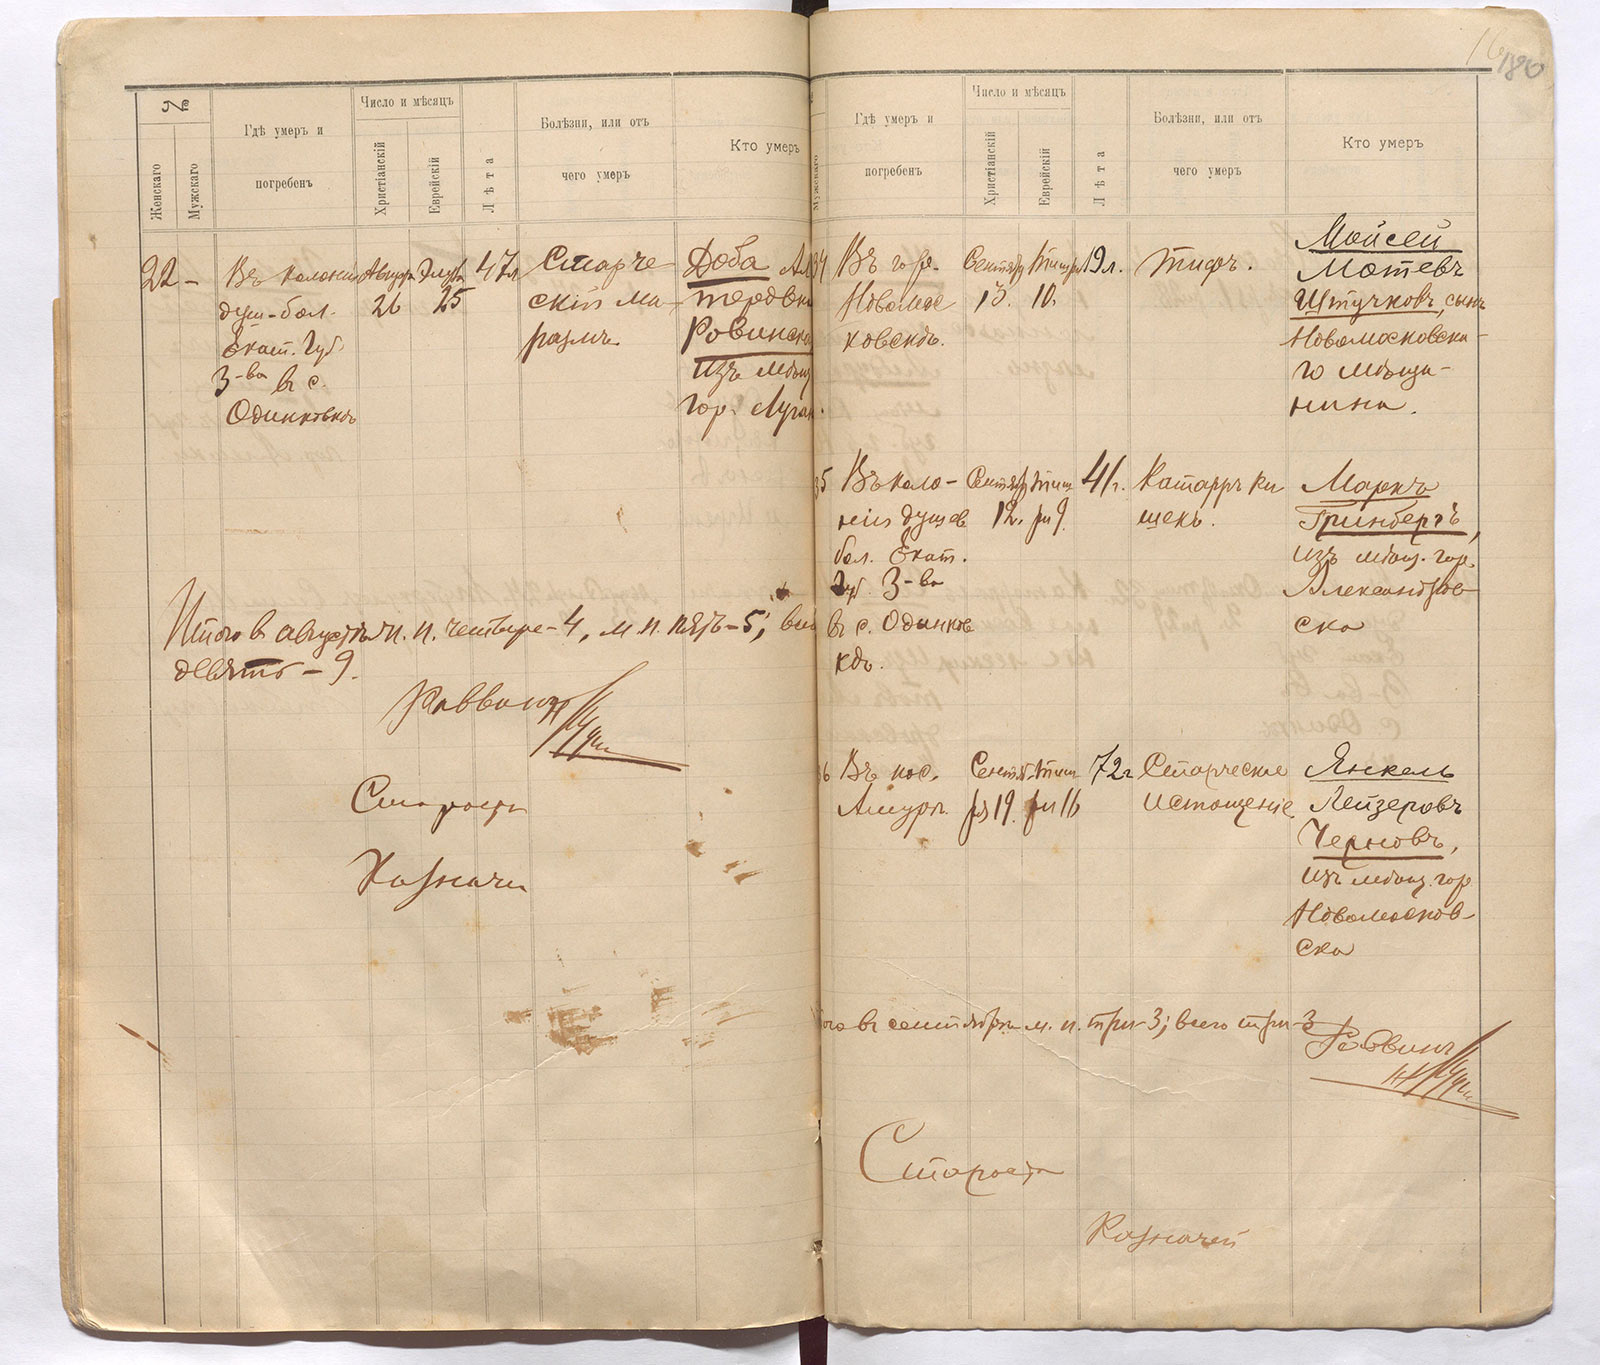 №
Женскаго
Мужскаго
Гдѣ умеръ и
погребенъ
Число и мѣсяцъ
Христіанскій
Еврейскій
Лѣта
Болѣзни, или отъ
чего умеръ
Кто умеръ
22 –
Въ колоніи
душ-бол.
Екат. Губ.
З-ва в с.
Одинковкѣ
Август
26
Элул
25
47 л
Старче
скій ма-
размъ
Доба
Ровинска
изъ мѣщ
гор. Луган
Итого в августѣ ж. п. четыре – 4, м. п. пять – 5; все
девять – 9.
Раввинъ
Староста
Казначей
180
Мужскаго
Гдѣ умеръ и
погребенъ
Число и мѣсяцъ
Христіанскій
Еврейскій
Лѣта
Болѣзни, или отъ
чего умеръ
Кто умеръ
34
Въ гор.
Новомос
ковскѣ.
Сентяб
13.
Тишр
10.
19 л.
тифъ.
Мойсей
Мотевъ
Штучковъ, сынъ
Новомосковска-
го мѣща-
нина.
35
Въ коло-
ніи душев
бол. Екат.
Губ. З-ва
в с. Одинков
кѣ.
Сентяб
12.
Тиш
ри 9
41 г.
Катарръ ки
шекъ.
Маркъ
Гринбергъ,
изъ мѣщ. гор.
Александров-
ска
36
Въ пос.
Амуръ.
Сентяб
ря 19.
Тиш
ри 16
72 г
Старческое
истощеніе
Янкель
Лейзеровъ
Черновъ,
изъ мѣщ. гор
Новомосков-
ска
ого в сентябрѣ м. п. три – 3; всего три – 3
Раввинъ
Староста
Казначей